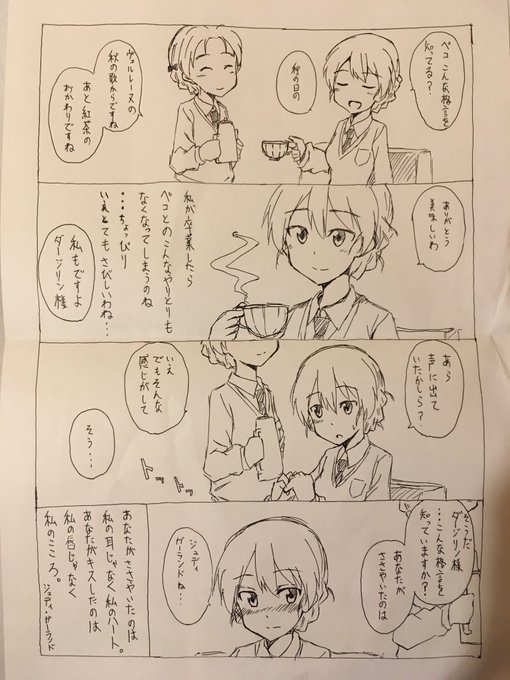 ペコ こんな格言を
知ってる？
秋の日の
ヴェルレーヌの
秋の歌からですね
あと紅茶の
おかわりですね
ありがとう
美味しいわ
私が卒業したら
ペコとのこんなやりとりも
なくなってしまうのね
…ちょっぴり
いえとてもさびしいわね…
私もですよ
ダージリン様
あら
声に出て
いたかしら？
いえ
でもそんな
感じがして
そう…
トットッ
そうだ
ダージリン様
…こんな格言を
知っていますか？
あなたが
ささやいたのは
ジュディ
ガーランドね…
あなたがささやいたのは
私の耳じゃなく私のハート。
あなたがキスしたのは
私の唇じゃなく
私のこころ。
ジュディ・ガーランド